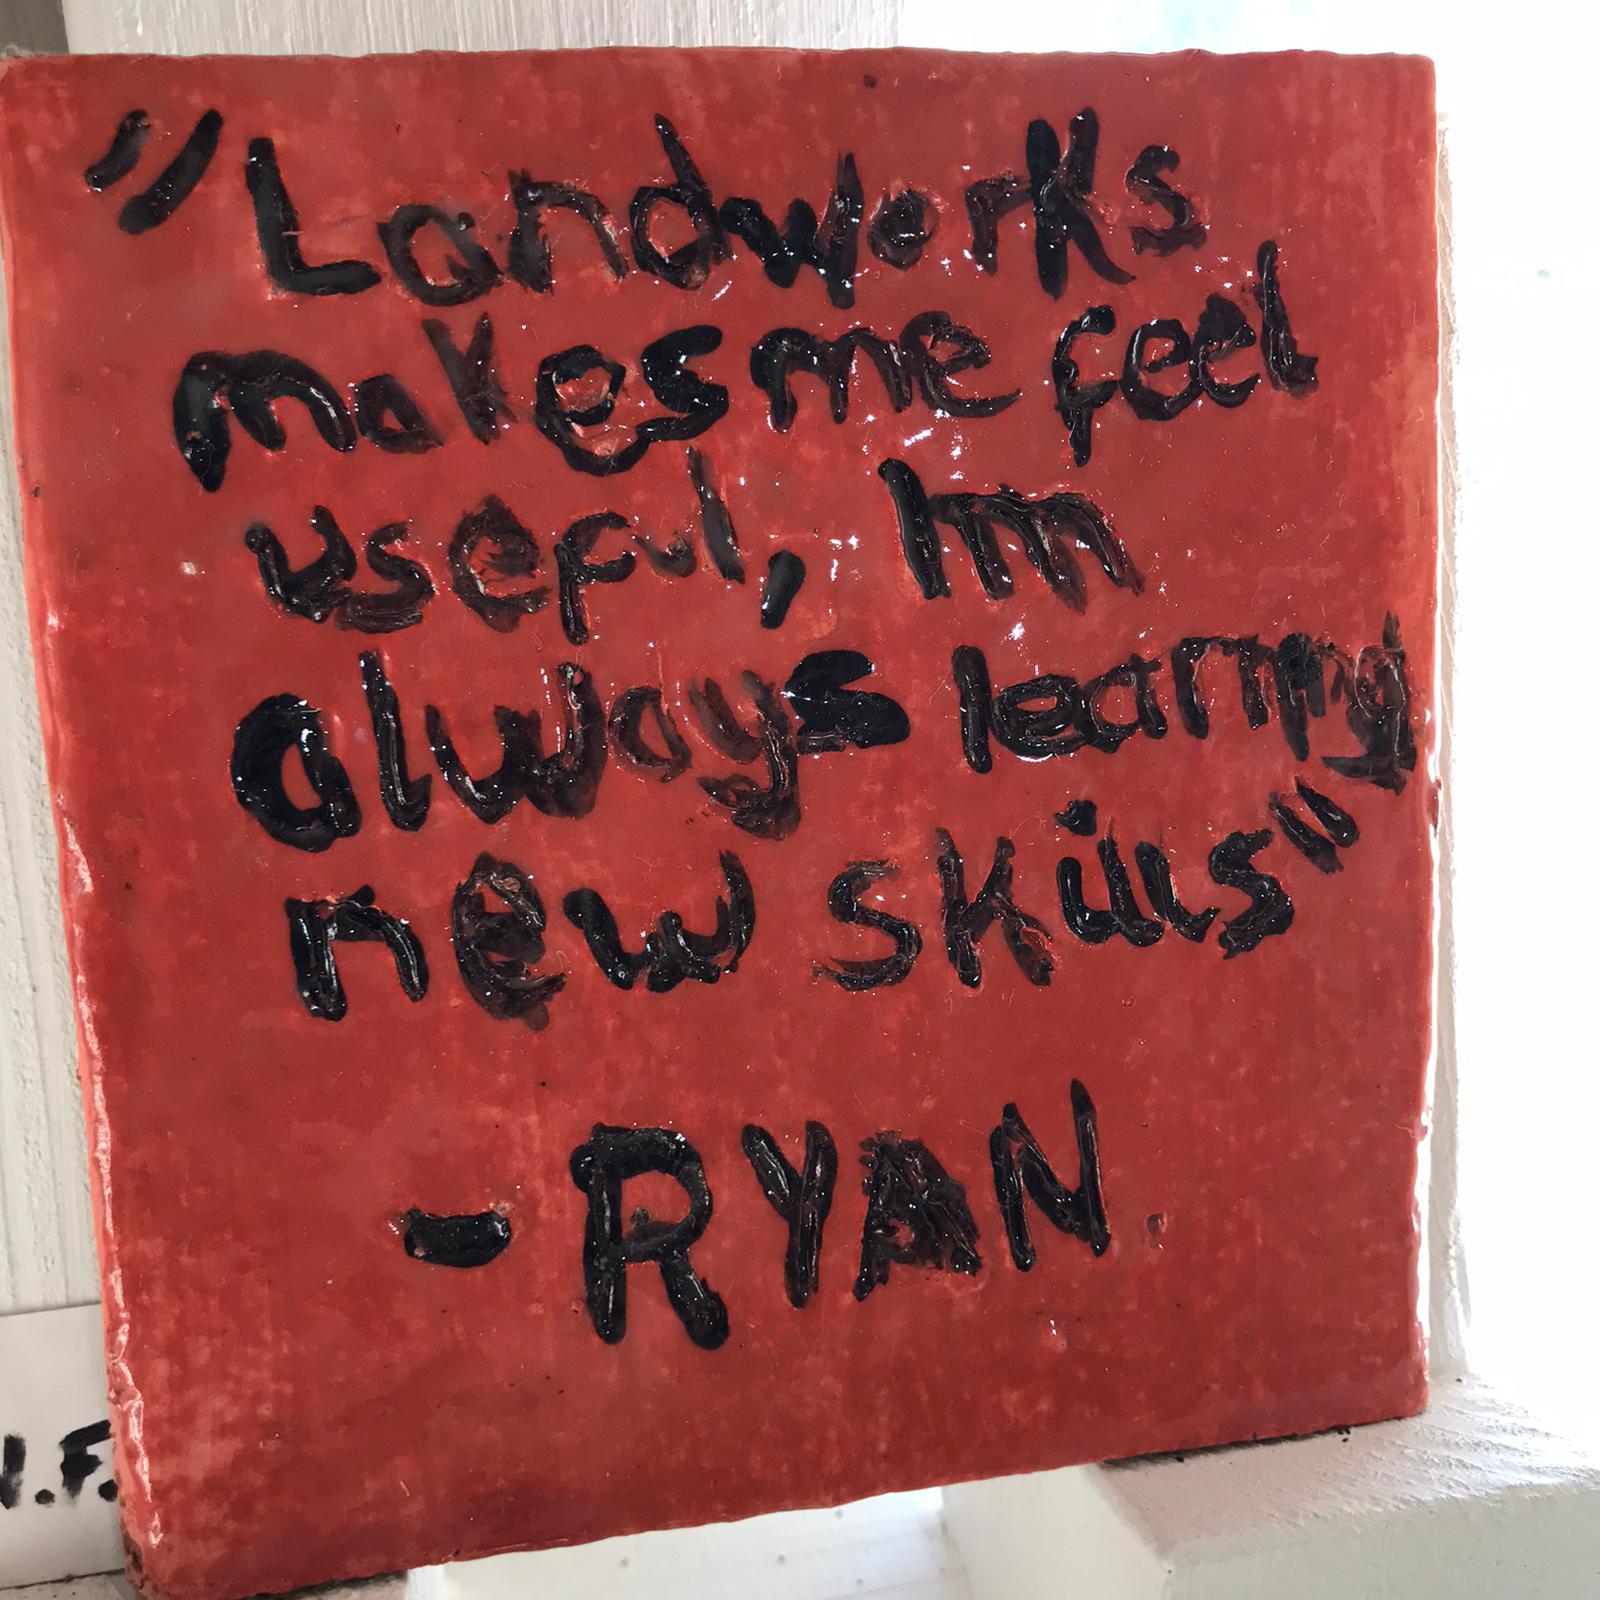 "Landworks
makes me feel
useful, Im
always learning
new skills"
- RYAN.